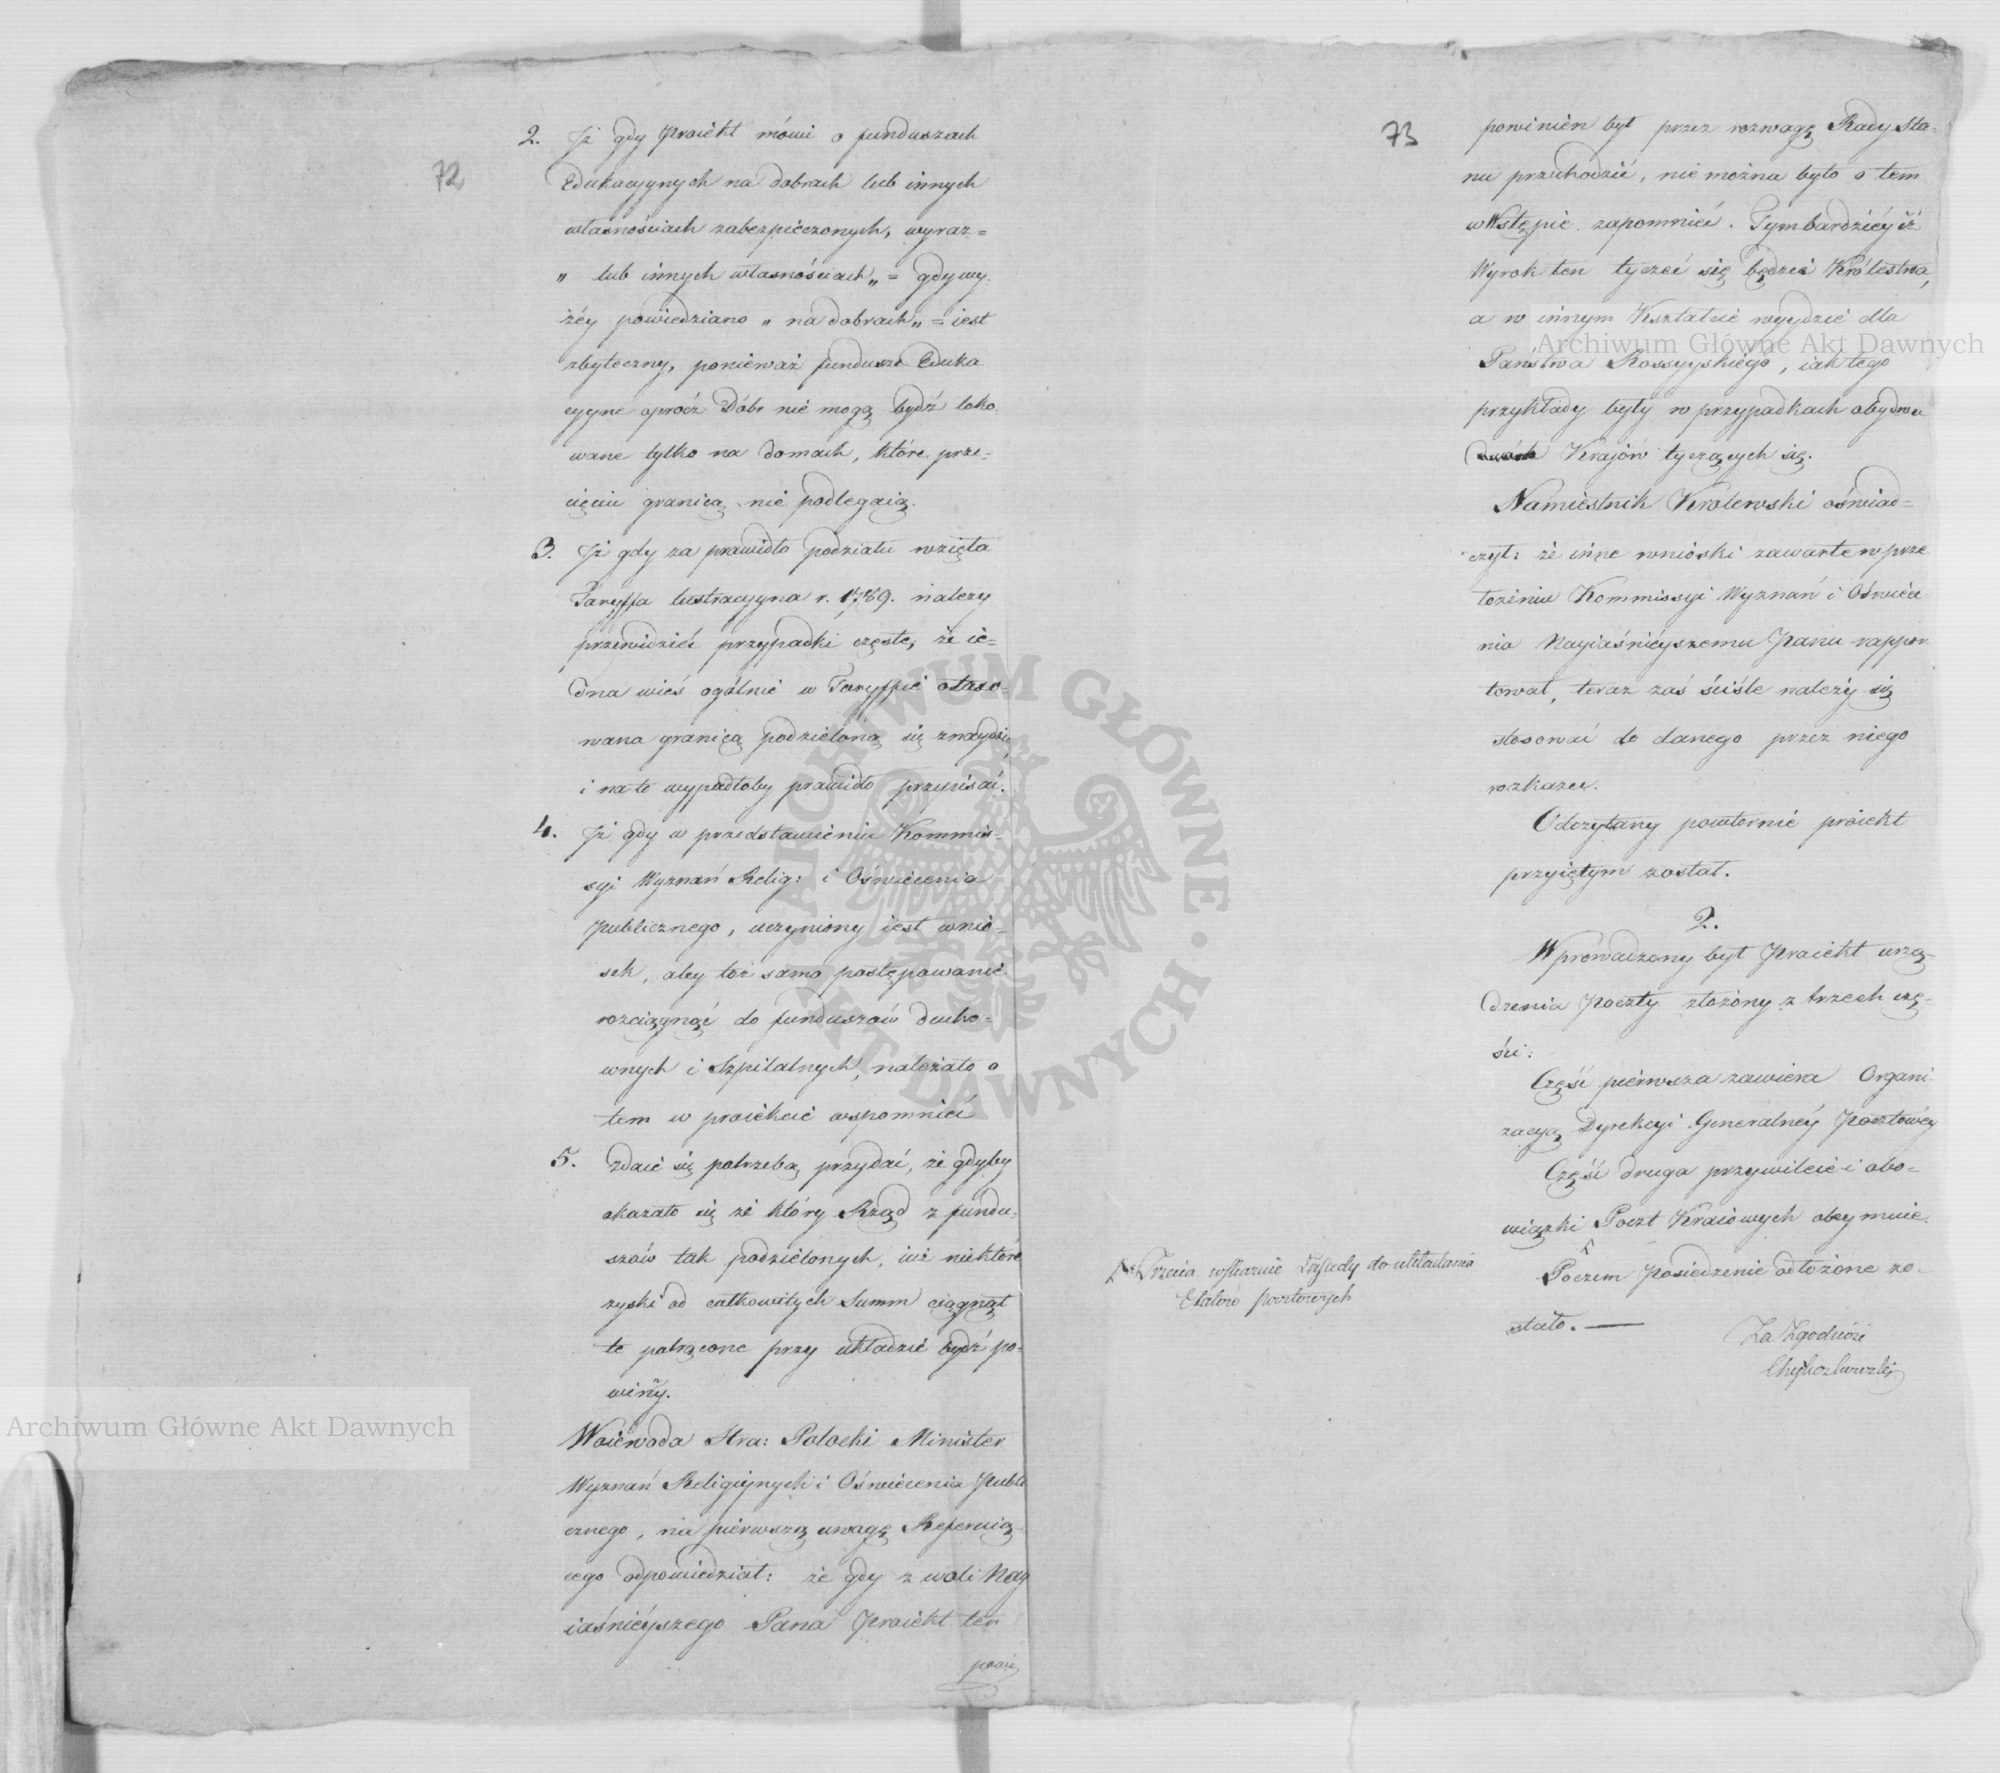 72
2. Iż gdy Proiekt mówi o funduszach
Edukacyynych na dobrach lub innych
własnościach zabezpieczonych, wyraz=
„ lub innych własnościach „ = gdy wy
żéy powiedziano „ na dobrach „ = iest
zbyteczny, ponieważ fundusze Eduka
cyyne oprócz Dóbr nie mogą bydź loko.
wane tylko na Domach, które prze=
cięciu granicą nie podlegaią.
3. Iż gdy za prawidło podziału wzięta
Taryffa lustracyyna r. 1789. należy
przewidzieć przypadki częste, że ie=
dna wieś ogólnie w Taryffie otaxo=
wana granicą podzieloną się znaydzie,
i na te wypadłoby prawidło przypisać.
4. Iż gdy w przedstawieniu Kommis=
syi Wyznań Relig: i Oświecenia
Publicznego, uczyniony iest wnio=
sek, aby toż samo postępowanie
rozciągnąć do funduszów ducho=
wnych i Szpitalnych, należało o
tem w proiekcie wspomnieć
5. Zdaie się potrzebą przydać, że gdyby
okazało się że który Rząd z fundu=
szów tak podzielonych, iuż niektóre
zyski od całkowitych Summ ciągnął
te potrącone przy układzie bydź po=
winny.
Woiewoda Stra: Potocki Minister
Wyznań Religiynych i Oświecenia Publi
cznego, na pierwszą uwagę Referuią=
cego odpowiedział: że gdy z woli Nay
iaśnieyszego Pana Proiekt ten
powi
73
powinien był przez rozwagę Rady Sta=
nu przechodzić, nie można było o tem
w Wstępie zapomnieć. Tym bardziéy iż
Wyrok ten tyczeć się będzie Królestwa,
a w innym Kształcie wyydzie dla
Państwa Rossyyskiego, iak tego
przykłady były w przypadkach obydwu
Kraiów tyczących się.
Namiestnik Krolewski oświad=
czył: że inne wnioski zawarte w prze
łożeniu Kommissyi Wyznań i Oświece
nia Nayiaśnieyszemu Panu rappor
tował, teraz zaś ściśle należy się
stosować do danego przez niego
rozkazu.
Odczytany powtornie proiekt
przyiętym został.
2.
Wprowadzony był Proiekt urzą=
dzenia Poczty złożony z trzech czę=
ści:
Część pierwsza zawiera Organi=
zacyą Dyrekcyi Generalnéy Pocztowéy
Część druga przywileie i obo=
wiązki Poczt Kraiowych obeymuie.
Trzecia wskazuie Zasady do układania
Etatów pocztowych
Poczem Posiedzenie odłożone zo=
stało. —
Za Zgodność
Archiwum Główne Akt Dawnych
Archiwum Główne Akt Dawnych
ARCHIWUM GŁÓWNE · AKT DAWNYCH ·